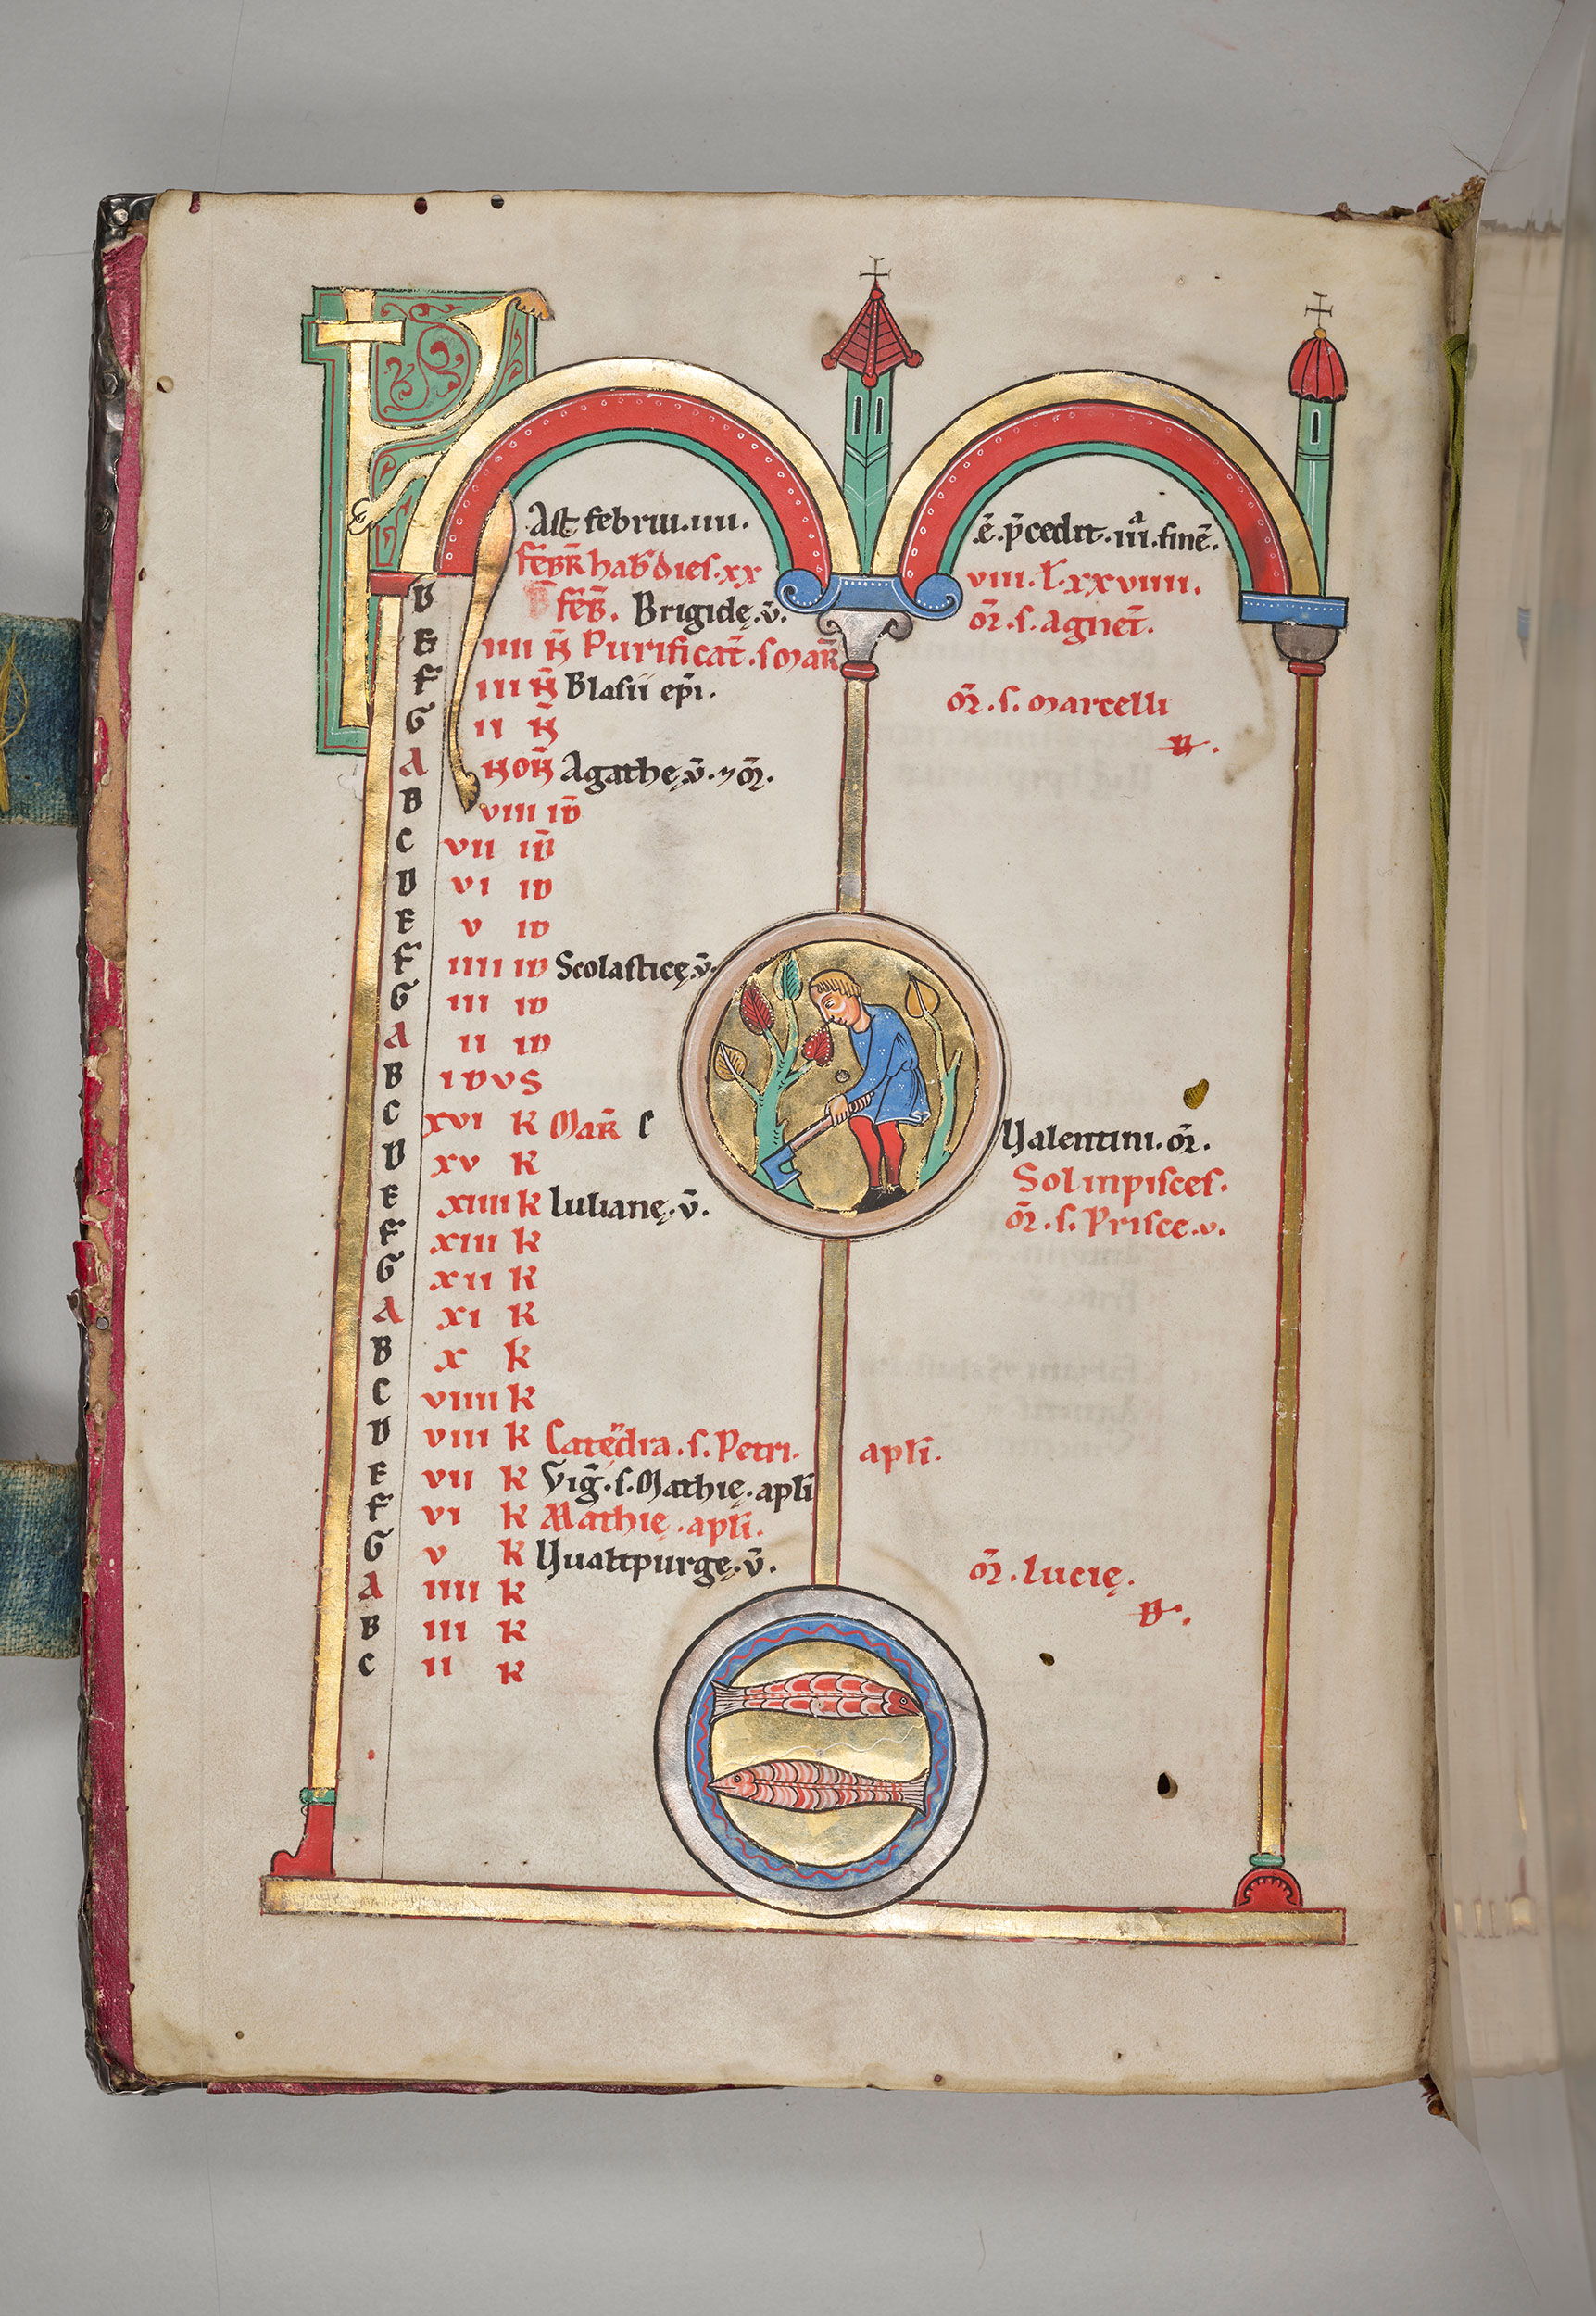 KL
Ast februi.iiii. ·ē·p̄cedit·iii̾·finē·
D fēbr̄ hab̄ dies·xx viii·l·xxviiii·
feb̄· Brigidę·v̄· or̄·s·agnet̄·
E iiii N̄ Purificat̄·s mar̄
F iii N̄ Blasii ep̄i· or̄·s·marcelli
G ii N̄ N·
A NON̄ Agathę·v̄·⁊ or̄·
B viii ID̄
C vii ID̄
D vi ID
E v ID
F iiii ID Scolasticę·v̄·
G iii ID
A ii ID
B IDVS
C xvi K Mar̄ Valentini·or̄·
D xv K Sol in pisces·
E xiiii K Iulianę·v̄· or̄·s·Prisce·v·
F xiii K
G xii K
A xi K
B x K
C viiii K
D viii K Catedra·s·Petri· apl̄i·
E vii K Viḡ·s·Mathię·apl̄i
F vi K Mathię·apl̄i·
G v K Vualtpurgę·v̄· or̄·Lucię·
A iiii K B·
B iii K
C ii K